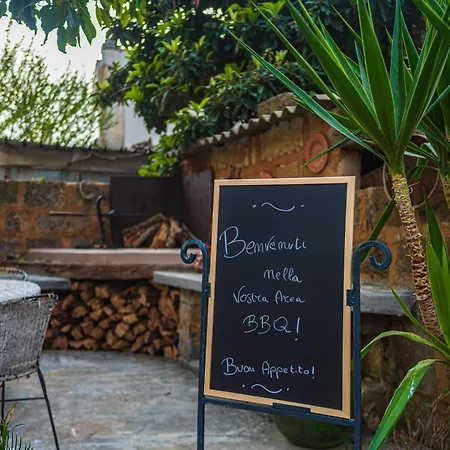 Benvenuti
nella
Vostra Area
BBQ!
Buon Appetito!